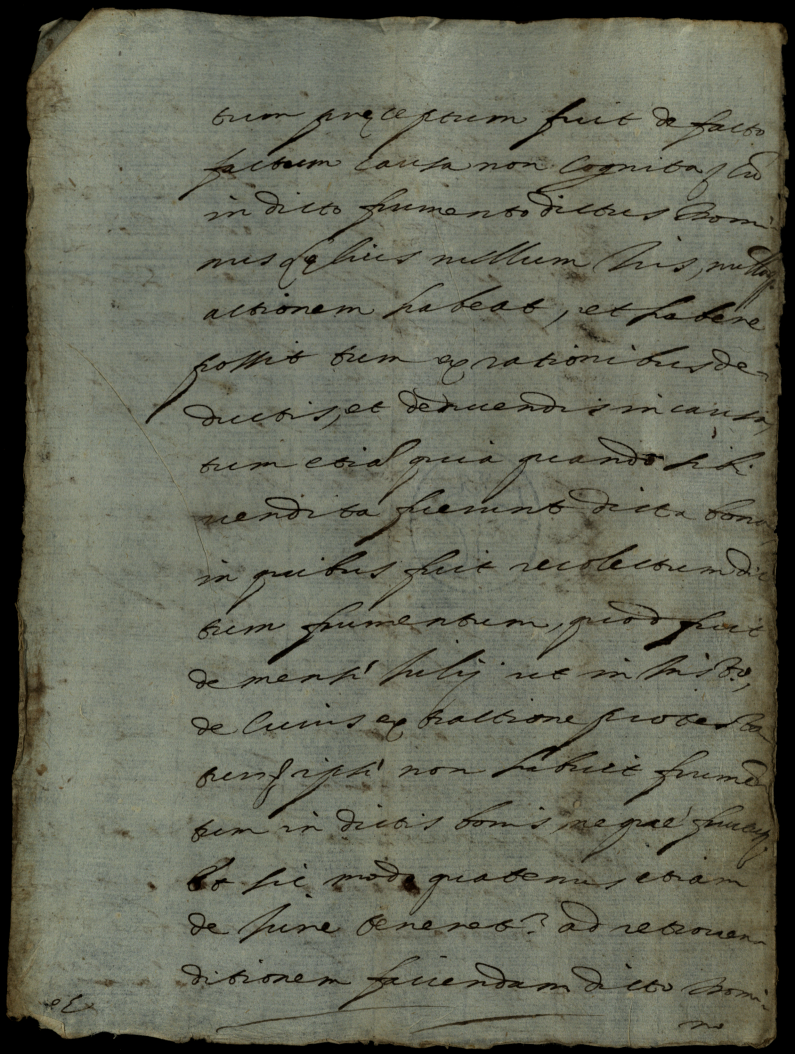 tum preceptum fuit de facto
factum causa non cognita, cu
in dicto frumento dictus Domi-
nus nullum Jus, nullā
actionem habeat, et habere
possit tum ex rationibus de-
ductis, et deducendis in causa,
tum etiā quia quando sibi
vendita fuerunt dicta bona
in quibus fuit recolectum dic
tum frumentum, quod fuit
de mensi Julij ut in Jnst.o,
de cuius extractione protesta
tur, ipsi non habuit frumē
tum in dictis bonis, neque fructus,
Et sic modo quatenus etiam
de Jure teneret? ad retroven-
ditionem faciendam dicto Domi-
no